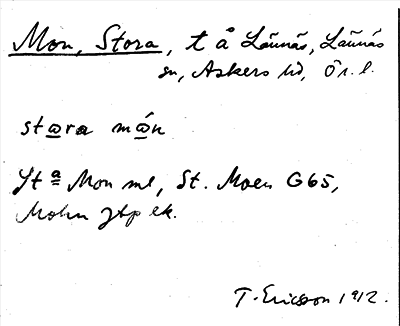 Mon, Stora, t å Lännäs, Lännäs
sn, Askers hd, Ör. l.
stora mån
St a Mon ml, St. Moen G65,
Mohn jtp ek.
T. Ericsson 1912.